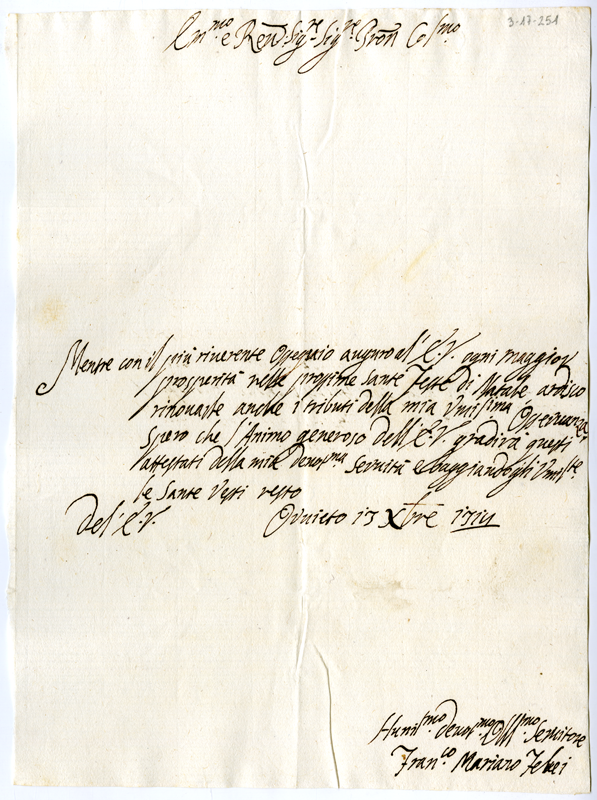 3-17-251
Em.mo e Reu Sig.re Sig.re Pron Col.mo
Mentre con il più riuerente Ossequio auguro all' E.V. ogni maggior
prosperità nelle prossime Sante Feste di Natale ardisco
rinouarle anche i tributi della mia Vmilissima Osseruanza
Spero che l'Animo generoso dell' E.V. gradirà questi
attestati della mia deuot.ma Seruitù e baggiandogli Vmil.te
le Sante Vesti resto
Del' E.V. Oruieto 13 Xbre
Humil.mo deuot.mo Obl.mo Seruitore
Fran.co Mariano Febei